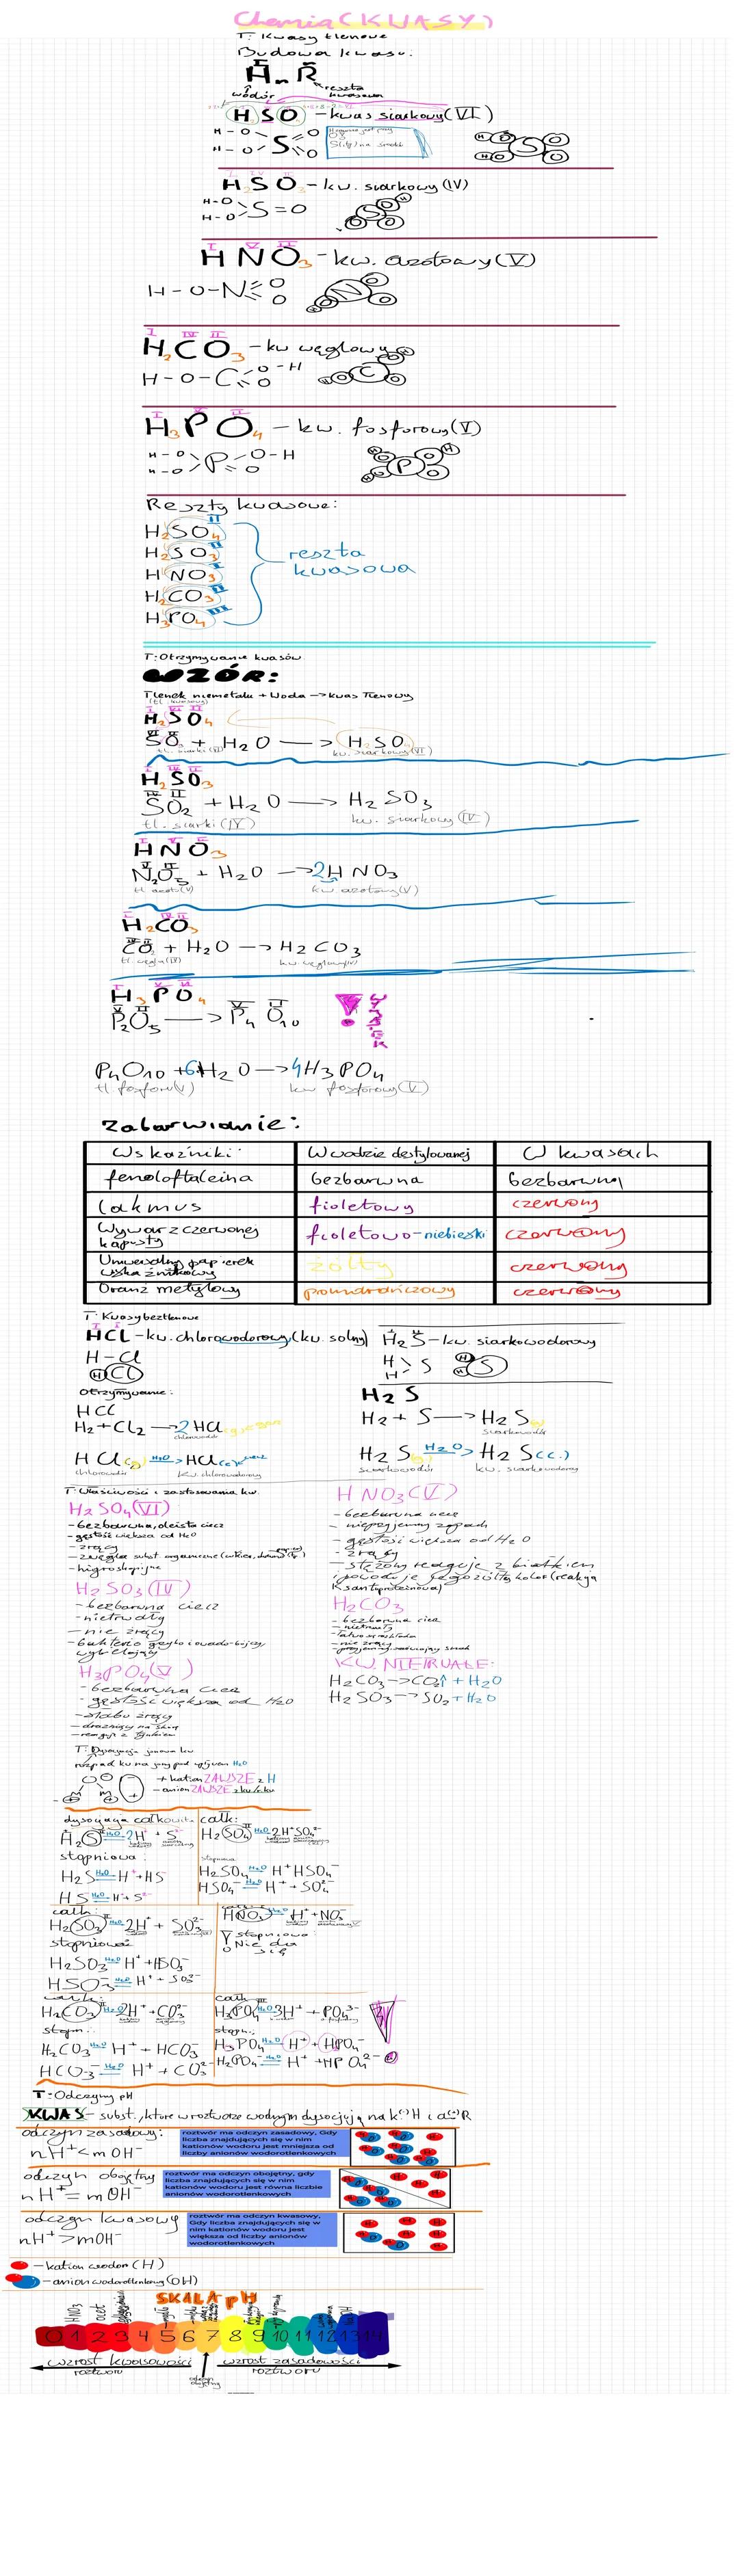 Chemia (KWASY)
T: Kwasy tlenowe
Budowa kwasu:
HₙR
wodór reszta kwasowa
H₂SO₄ - kwas siarkowy (VI)
H-O O
S
H-O O
H₂SO₃ - kw. siarkowy (IV)
H-O
S=O
H-O
I V II
HNO₃ - kw. azotowy (V)
H-O-N O
O
I IV II
H₂CO₃ - kw węglowy
H-O-C O-H
O
I V II
H₃PO₄ - kw. fosforowy (V)
H-O O-H
P
H-O O
Reszty kwasowe:
H₂SO₄ II
H₂SO₃ II
HNO₃ I
H₂CO₃ II
H₃PO₄ III
reszta
kwasowa
T: Otrzymywanie kwasów
WZÓR:
Tlenek niemetalu + Woda -> kwas Tlenowy
(tl. kwasowy)
I VI II
H₂SO₄
SO₃ + H₂O -> H₂SO₄
tl. siarki (VI) kw. siarkowy (VI)
I IV II
H₂SO₃
IV II
SO₂ + H₂O -> H₂SO₃
tl. siarki (IV) kw. siarkowy (IV)
I V II
HNO₃
V II
N₂O₅ + H₂O -> 2HNO₃
tl. azotu (V) kw azotowy (V)
I IV II
H₂CO₃
IV II
CO₂ + H₂O -> H₂CO₃
tl. węgla (IV) kw. węglowy (IV)
I V II
H₃PO₄
V II V II
P₂O₅ -> P₄O₁₀
P₄O₁₀ + 6H₂O -> 4H₃PO₄
tl. fosforu (V) kw fosforowy (V)
Zabarwianie:
Wskaźniki: W wodzie destylowanej W kwasach
fenoloftaleina bezbarwna bezbarwna
lakmus fioletowy czerwony
Wywar z czerwonej kapusty fioletowo-niebieski czerwony
Uniwersalny papierek wskaźnikowy żółty czerwony
Oranż metylowy pomarańczowy czerwony
T: Kwasy beztlenowe
I I
HCl - kw. chlorowodorowy (kw. solny)
H-Cl
HCl
I II
H₂S - kw. siarkowodorowy
H
S
H
Otrzymywanie:
HCl
H₂ + Cl₂ -> 2HCl
chlorowodór
HCl(g) H₂O -> HCl(c)
chlorowodór kw. chlorowodorowy
H₂S
H₂ + S -> H₂S(g)
siarkowodór
H₂S(g) H₂O -> H₂S(c.)
siarkowodór kw. siarkowodorowy
T: Właściwości i zastosowania kw.
H₂SO₄ (VI)
- bezbarwna, oleista ciecz
- gęstość większa od H₂O
- żrący
- zwęgla subst. organiczne (cukier, drewno)
- higroskopijne
H₂SO₃ (IV)
- bezbarwna ciecz
- nietrwały
- nie żrący
- bakterio grzybo i owado-bójczy
wybielający
H₃PO₄ (V)
- bezbarwna ciecz
- gęstość większa od H₂O
- słabo żrący
- drażniący na skórę
HNO₃ (V)
- bezbarwna ciecz
- nieprzyjemny zapach
- gęstość większa od H₂O
- żrący
- stężony reaguje z białkiem
i powoduje jego żółty kolor (reakcja
ksantoproteinowa)
H₂CO₃
- bezbarwna ciecz
- nietrwały
- łatwo się rozkłada
- nie żrący
- przyjemny, orzeźwiający smak
KW. NIETRWAŁE:
H₂CO₃ -> CO₂↑ + H₂O
H₂SO₃ -> SO₂ + H₂O
T: Dysocjacja jonowa kw
rozpad kw na jony pod wpływem H₂O
+ kation ZAWSZE z H
- anion ZAWSZE z kw/r.kw
dysocjacja całkowita całk:
H₂S H₂O 2H⁺ + S²⁻ H₂SO₄ H₂O 2H⁺SO₄²⁻
stopniowa: stopniowa
H₂S H₂O H⁺ + HS⁻ H₂SO₄ H₂O H⁺HSO₄⁻
HS⁻ H₂O H⁺ + S²⁻ HSO₄⁻ H₂O H⁺ + SO₄²⁻
całk: całk:
H₂SO₃ H₂O 2H⁺ + SO₃²⁻ HNO₃ H₂O H⁺ + NO₃⁻
stopniowa: stopniowa:
Nie da się
H₂SO₃ H₂O H⁺ + HSO₃⁻
HSO₃⁻ H₂O H⁺ + SO₃²⁻
całk: całk:
H₂CO₃ H₂O 2H⁺ + CO₃²⁻ H₃PO₄ H₂O 3H⁺ + PO₄³⁻
stopn.: stopn.:
H₂CO₃ H₂O H⁺ + HCO₃⁻ H₃PO₄ H₂O H⁺ + HPO₄⁻
HCO₃⁻ H₂O H⁺ + CO₃²⁻ H₂PO₄⁻ H₂O H⁺ + HPO₄²⁻
T: Odczyny pH
KWAS - subst., które w roztworze wodnym dysocjują na k.(+)H i a(-)R
odczyn zasadowy:
nH⁺ < mOH⁻
roztwór ma odczyn zasadowy, Gdy
liczba znajdujących się w nim
kationów wodoru jest mniejsza od
liczby anionów wodorotlenkowych
odczyn obojętny
nH⁺ = mOH⁻
roztwór ma odczyn obojętny, gdy
liczba znajdujących się w nim
kationów wodoru jest równa liczbie
anionów wodorotlenkowych
odczyn kwasowy
nH⁺ > mOH⁻
roztwór ma odczyn kwasowy,
Gdy liczba znajdujących się w
nim kationów wodoru jest
większa od liczby anionów
wodorotlenkowych
- kation wodoru (H)
- anion wodorotlenkowy (OH)
SKALA pH
HNO₃ ocet
0 1 2 3 4 5 6 7 8 9 10 11 12 13 14
wzrost kwasowości roztworu
wzrost zasadowości roztworu
odczyn obojętny